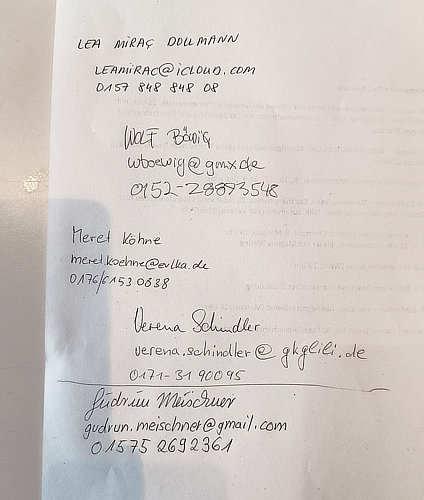 LEA MIRAÇ DOLLMANN
LEAMIRAC@iCLOUD.COM
0157 848 848 08
Wolf Böwig
wboewig@gmx.de
0152-28893548
Meret Köhne
meret.koehne@evlka.de
0176/6153 0638
Verena Schindler
verena.schindler@gkglili.de
0171-3190095
Gudrun Meischner
gudrun.meischner@gmail.com
01575 2692361